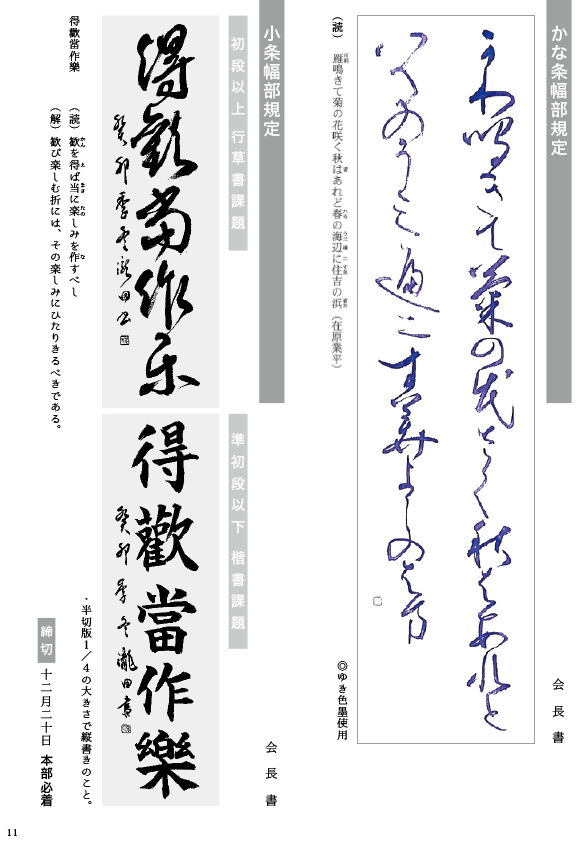 かな条幅部規定
会長書
鳴きて菊の花さく秋はあれと
◎ゆき色墨使用
(読) 雁鳴きて菊の花咲く秋はあれど春の海辺に住吉の浜 (在原業平)
小条幅部規定
会長書
初段以上 行草書課題
得歡當作樂
癸卯季冬瀧田書
準初段以下 楷書課題
得歡當作樂
癸卯季冬瀧田書
・半切版1/4の大きさで縦書きのこと。
得歡當作樂
(読) 歓を得ば当に楽しみを作すべし
(解) 歓び楽しむ折には、その楽しみにひたりきるべきである。
締切 十二月二十日 本部必着
11